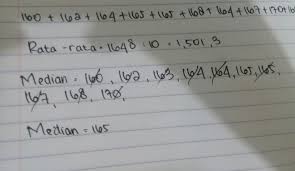 160 + 162 + 164 + 165 + 165 + 168 + 164 + 167 + 170 + 16
Rata-rata = 1648 : 10 = 1,501,3
Median = 160, 162, 163, 164, 164, 165, 165,
167, 168, 170,
Median = 165